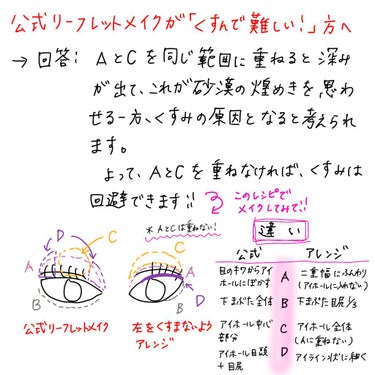 公式リーフレットメイクが「くすんで難しい!」方へ
→ 回答: AとCを同じ範囲に重ねると深み
が出て、これが砂漠の煌めきを思わ
せる一方、くすみの原因となると考えられ
ます。
よって、AとCを重ねなければ、くすみは
回避できます!!
このレシピで
メイクしてみて!!
※AとCは重ねない!
違い
D
C
A
B
公式リーフレットメイク
C
A
D
B
左をくすまないよう
アレンジ
公式 アレンジ
目のキワからアイ
ホールにぼかす
A
二重幅にふんわり
(アイホールに入れない)
下まぶた全体
B
下まぶた目尻1/3
アイホール中心
部分
C
アイホール全体
(Aに重ねない)
アイホール目頭
+目尻
D
アイライン状に細く